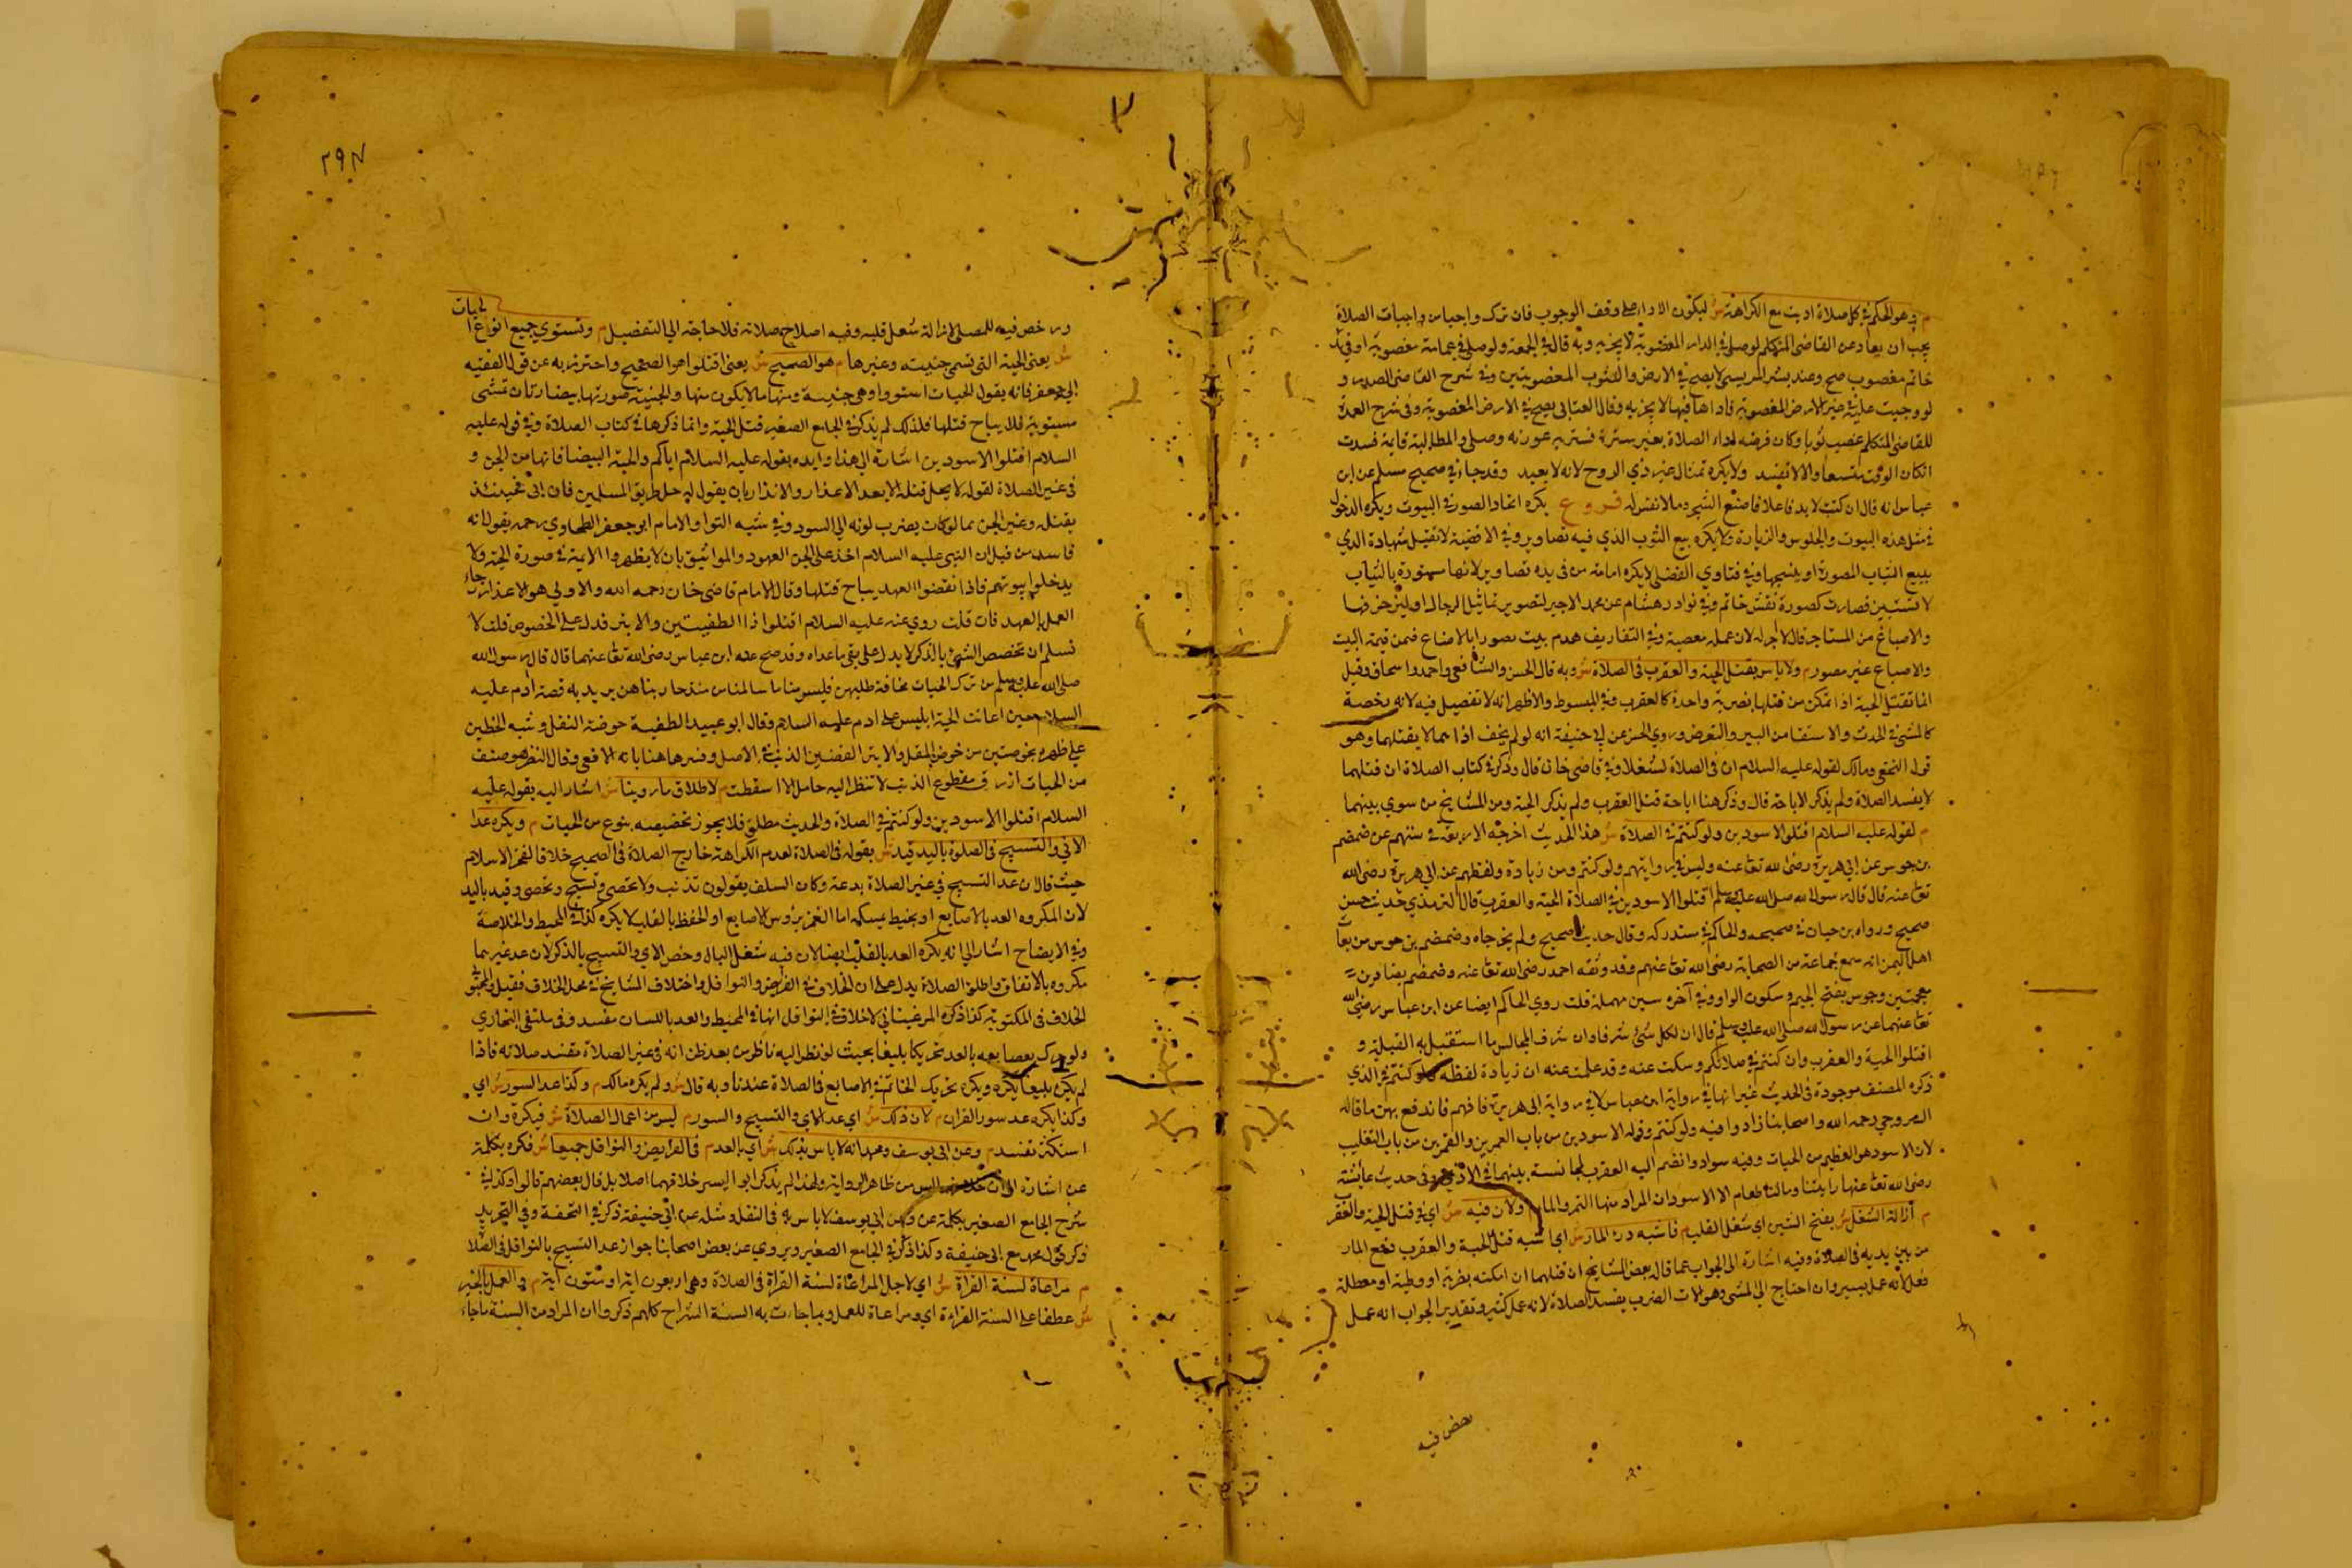 م وهو الحكم في كل صلاة اديت مع الكراهة ش ليكون الاداء على وفق الوجوب فان ترك واجبا من واجبات الصلاة
يجب ان يعاد عن القاضي المتكلم لو صلى في الدار المغصوبة لا يجزيه وبه قال في الجمعة ولو صلى في عمامة مغصوبة او في يده
خاتم مغصوب صح وعند بشر المريسي لا يصح في الارض والثوب المغصوبتين وفي شرح القاضي الصدر و
لو وجبت عليه في غير الارض المغصوبة فاداها فيها لا يجزيه وقال العتابي يصح في الارض المغصوبة وفي شرح العمدة
للقاضي المتكلم غصب ثوبا وكان فرضه اداء الصلاة بغير سترة فستر به عورته وصلى والمطالبة قايمة فسدت
انكان الوقت متسعا والا لا تفسد ولا يكره تمثال غير ذي الروح لانه لا يعبد وقد جاء في صحيح مسلم عن ابن
عباس انه قال ان كنت لا بد فاعلا فاصنع الشجر وما لا نفس له فروع يكره اتخاذ الصور في البيوت ويكره الدخول
في مثل هذه البيوت والجلوس والزيارة ولا يكره بيع الثوب الذي فيه تصاوير وفي الاقضية لا تقبل شهادة الذي
يبيع الثياب المصورة او ينسجها وفي فتاوي الفضلي لا يكره امامة من في يده تصاوير لانها مستورة بالثياب
لا تستبين فصارت كصورة نقش خاتم وفي نوادر هشام عن محمد الاجير لتصوير تماثيل الرجال او ليزخرفها
والاصباغ من المستاجر قال لا اجر له لان عمله معصية وفي التفاريق هدم بيت مصورا بالاصباغ ضمن قيمة البيت
والاصباغ غير مصور م ولا باس بقتل الحية والعقرب في الصلاة ش وبه قال الحسن والشافعي واحمد واسحاق وقيل
انما تقتل الحية اذا تمكن من قتلها بضربة واحدة كالعقرب وفي المبسوط والاظهر انه لا تفصيل فيه لانه رخصة
كالمشي في الحدث والاستقا من البير والتعرض وروي الحسن عن ابي حنيفة انه لو لم يخف اذاهما لا يقتلهما وهو
قول النخعي ومالك لقوله عليه السلام ان في الصلاة لشغلا وفي قاضي خان قال وذكر في كتاب الصلاة ان قتلهما
لا يفسد الصلاة ولم يذكر الاباحة قال وذكر هنا اباحة قتل العقرب ولم يذكر الحية ومن المشايخ من سوي بينهما
م لقوله عليه السلام اقتلوا الاسودين ولو كنتم في الصلاة ش هذا الحديث اخرجه الاربعة في سننهم عن ضمضم
بن جوس عن ابي هريرة رضي الله تعا عنه وليس في روايتهم ولو كنتم ومن زيادة ولفظهم عن ابي هريرة رضي الله
تعا عنه قال قال رسول الله صلى الله عليه وسلم اقتلوا الاسودين في الصلاة الحية والعقرب قال الترمذي حديث حسن
صحيح ورواه بن حبان في صحيحه والحاكم في مستدركه وقال حديث صحيح ولم يخرجاه وضمضم بن جوس من
اهل اليمن انه سمع جماعة من الصحابة رضي الله تعا عنهم وقد وثقه احمد رضي الله تعا عنه وضمضم
معجمتين وجوس بفتح الجيم وسكون الواو وفي آخره سين مهملة قلت روي الحاكم ايضا عن ابن عباس رضي الله
تعا عنهما عن رسول الله صلى الله عليه وسلم قال ان لكل شئ شرفا وان شرف المجالس ما استقبل به القبلة و
اقتلوا الحية والعقرب وان كنتم في صلاتكم وسكت عنه وقد علمت عنه ان زيادة لفظة ولو كنتم في الذي
ذكره المصنف موجودة في الحديث غير انها في رواية ابن عباس لا في رواية ابي هريرة فافهم فاندفع بهن ما قاله
السروجي رحمه الله واصحابنا زادوا فيه ولو كنتم وقوله الاسودين من باب العمرين والقمرين من باب التغليب
لان الاسود هو العظيم من الحيات وفيه سواد وانضم اليه العقرب لمجانسة بينهما في الاذي وفي حديث عايشة
رضي الله تعا عنها رايتنا وما لنا طعام الا الاسودان المراد منها التمر والماء م ولان فيه ش اي في قتل الحية والعقرب
م ازالة الشغل ش بفتح الشين اي شغل القلب م فاشبه درء المار ش اي اشبه قتل الحية والعقرب دفع المار
من بين يديه في الصلاة وفيه اشارة الى الجواب عما قال بعض المشايخ ان قتلهما ان امكنه بضربة او وطية او معطلة
فعل لانه عمل يسير وان احتاج الي المشي وهو الات الضرب يفسد الصلاة لانه عمل كثير وتقدير الجواب انه عمل
رخص فيه
٢٩٧
ورخص فيه للمصلي لازالة شغل قلبه وفيه اصلاح صلاته فلا حاجة الي التفصيل م وتستوي جميع انواع الحيات
ش يعني الحية التي تسمى جنية وغيرها م هو الصحيح ش يعني اقتلوا هو الصحيح واحترز به عن قول الفقيه
ابي جعفر فانه يقول الحيات استووا وهي جنية ومنها ما لا يكون منها والجنية صورتها بيضا رتان تمشي
مستوية فلا يباح قتلها فلذلك لم يذكر في الجامع الصغير قتل الحية وانما ذكرها في كتاب الصلاة وفي قوله عليه
السلام اقتلوا الاسودين اشارة الي هذا وايده بقوله عليه السلام اياكم والحية البيضا فانها من الجن و
في غير الصلاة لقوله لا يحل قتلها الا بعد الاعذار والانذار بان يقول لها خل طريق المسلمين فان ابي فحينئذ
يقتله وغير الجن مما لو كان يضرب لونه الي السود وفي شبه التوا والامام ابو جعفر الطحاوي رحمه يقول انه
فاسد من قبل ان النبي عليه السلام اخذ على الجن العهود والمواثيق بان لا يظهروا الامية في صورة الحية ولا
يدخلوا بيوتهم فاذا نقضوا العهد يباح قتلها وقال الامام قاضي خان رحمه الله والاولي هو الاعذار رجاء
العمل بالعهد فان قلت روي عنه عليه السلام اقتلوا ذا الطفيتين والابتر فدل على الخصوص قلت لا
نسلم ان تخصيص الشئ بالذكر لا يدل على نفي ما عداه وقد صح عن ابن عباس رضي الله تعا عنهما قال قال رسول الله
صلى الله عليه وسلم من ترك الحيات مخافة طلبهن فليس منا ما سالمناهن منذ حاربناهن يريد به قصة آدم عليه
السلام حين اعانت الحية ابليس على ادم عليه السلام وقال ابو عبيد الطفية خوصة المقل وشبه الخطين
على ظهره بخوصتين من خوص المقل والابتر القصير الذنب في الاصل وفسرها هنا بانه الافعي وقال النضر هو صنف
من الحيات ازرق مقطوع الذنب لا تنظر اليه حامل الا اسقطت م لاطلاق ما روينا ش اشار اليه بقوله عليه
السلام اقتلوا الاسودين ولو كنتم في الصلاة والحديث مطلق فلا يجوز تخصيصه بنوع من الحيات م ويكره عد
الاي والتسبيح في الصلوة باليد قيد ش بقوله في الصلاة لعدم الكراهة خارج الصلاة في الصحيح خلافا لفخر الاسلام
حيث قال ان عد التسبيح في غير الصلاة بدعة وكان السلف يقولون تذنب ولا تحصي وتسبح وتحصي وقيد باليد
لان المكروه العد بالاصابع او بخيط يمسكه اما الغمز برؤس الاصابع او الحفظ بالقلب لا يكره كذا في المحيط والخلاصة
وفي الايضاح اشار الي انه يكره العد بالقلب ايضا لان فيه شغل البال وخص الاي والتسبيح بالذكر لان عد غيرهما
مكروه بالاتفاق واطلق الصلاة يدل على ان الخلاف في الفرايض والنوافل واختلف المشايخ في محل الخلاف فقيل
الخلاف في المكتوبة كذا ذكره المرغيناني لا خلاف في النوافل انها في المحيط والعد باللسان مفسد وفي ملتقى البحاري
ولو حرك بعض اصابعه بالعد تحريكا بليغا بحيث لو نظر اليه ناظر من بعد ظن انه في غير الصلاة تفسد صلاته فاذا
لم يكن بليغا يكره ويكره تحريك الخاتم في الاصابع في الصلاة عندنا وبه قال ش ولم يكره مالك م وكذا عد السور ش اي
وكذا يكره عد سور القران م لان ذلك ش اي عد الاي والتسبيح والسور م ليس من اعمال الصلاة ش فيكره وان
استكثر تفسد م وعن ابي يوسف ومحمد انه لا باس بذلك ش اي بالعد م في الفرايض والنوافل جميعا ش فكره بكلمة
عن اشارة الى ان خلافهما ليس من ظاهر الرواية ولهذا لم يذكر ابو اليسر خلافهما اصلا بل قال بعضهم قالوا وكذا في
شرح الجامع الصغير بكلمة عن وعن ابي يوسف لا باس به في النفل ومثله عن ابي حنيفة ذكر في التحفة وفي التجريد
ذكر قول محمد مع ابي حنيفة وكذا ذكر في الجامع الصغير ويروي عن بعض اصحابنا جواز عد التسبيح بالنوافل في الصلا
م مراعاة لسنة القراة ش اي لاجل المراعاة لسنة القراة في الصلاة وهي اربعون اية او ستون اية م والعمل بالخبر
ش عطفا على السنة القراءة اي ومراعاة للعمل وبما جاءت به السنة الشراح كلهم ذكروا ان المراد من السنة ما جاء